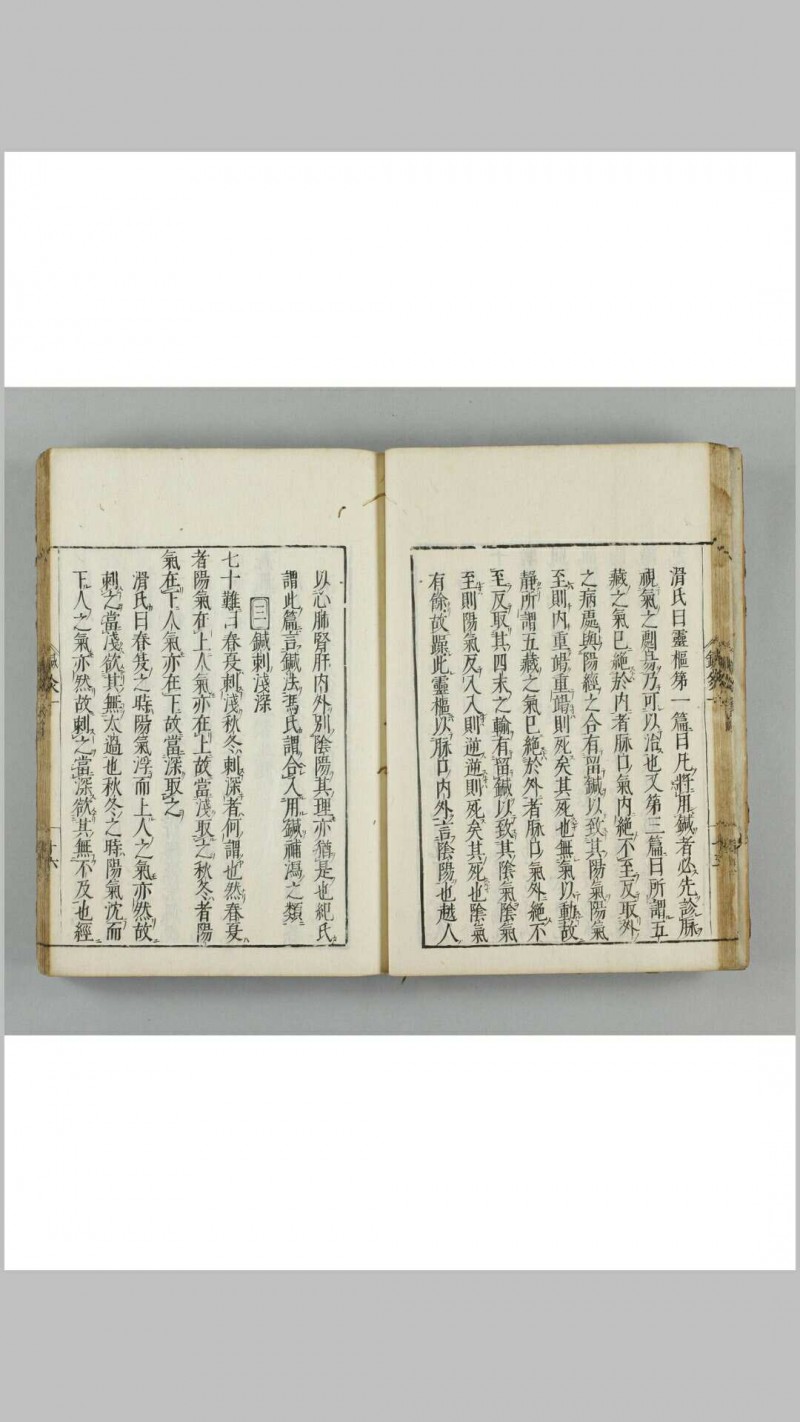 滑氏曰靈樞第一篇曰凡將用鍼者必先診脉
視氣之劇易乃可以治也又第三篇曰所謂五
藏之氣已絕於內者脉口氣內絕不至反取外
之病處與陽經之合有留鍼以致其陽氣陽氣
至則內重竭重竭則死矣其死也無氣以動故
靜所謂五藏之氣已絕於外者脉口氣外絕不
至反取其四末之輸有留鍼以致其陰氣陰氣
至則陽氣反入入則逆逆則死矣其死也陰氣
有餘故躁此靈樞以脉口內外言陰陽也越人
以心肺腎肝內外別陰陽其理亦猶是也紀氏
謂此篇言鍼法馮氏謂合入用鍼補瀉之類
三 鍼刺淺深
七十難曰春夏刺淺秋冬刺深者何謂也然春夏
者陽氣在上人氣亦在上故當淺取之秋冬者陽
氣在下人氣亦在下故當深取之
滑氏曰春夏之時陽氣浮而上人之氣亦然故
刺之當淺欲其無太過也秋冬之時陽氣沈而
下人之氣亦然故刺之當深欲其無不及也經